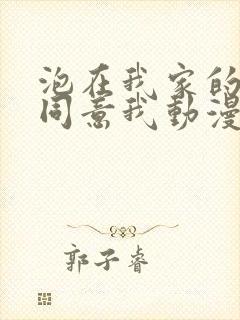 泡在我家的
同意我動漫
郭子睿